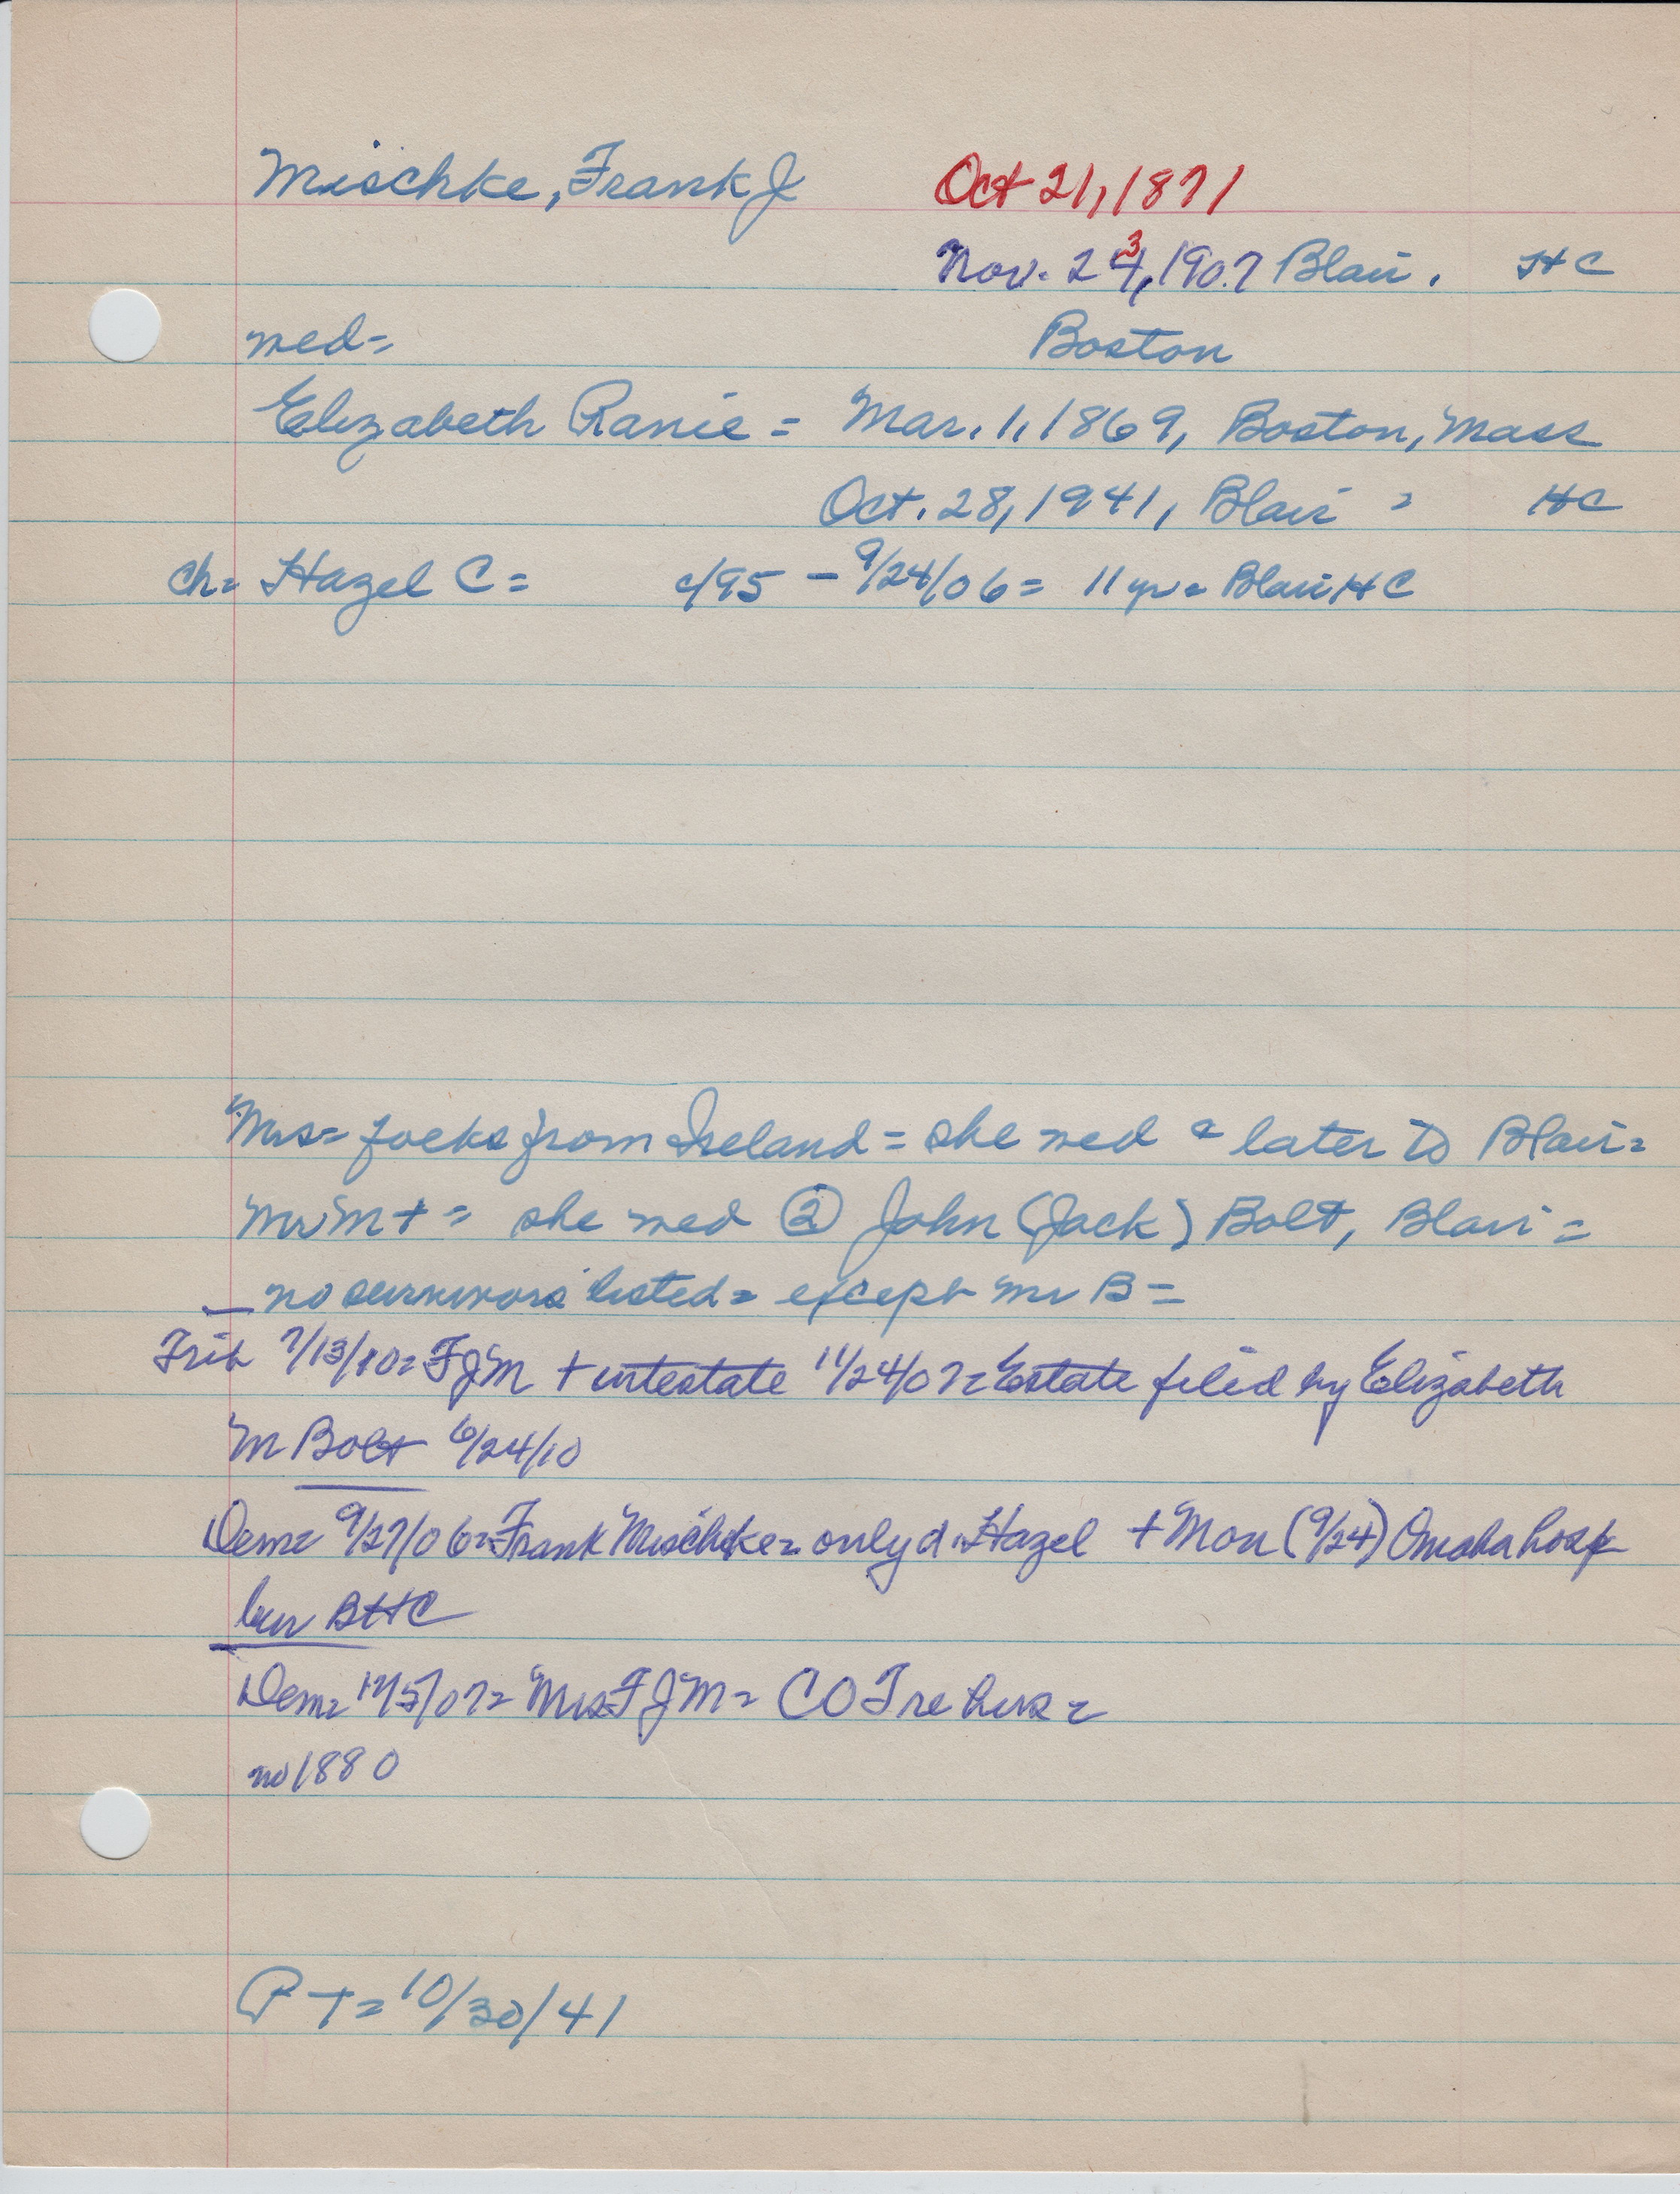 Mischke, Frank J Oct 21, 1871
3
Nov. 24, 1907 Blair. HC
med= Boston
Elizabeth Ranie = Mar. 1, 1869, Boston, Mass
Oct. 28, 1941, Blair = HC
ch= Hazel C= c/95 - 9/24/06= 11 yr= Blair HC
Mrs= folks from Ireland = she med & later to Blair=
Mr M + = she med ② John (Jack) Bolt, Blair =
no survivors listed = except Mr B =
Trib 7/13/10= FJM + intestate 11/24/07= Estate filed by Elizabeth
M Bolt 6/24/10
Dem= 9/27/06= Frank Mischke= only d. Hazel + Mon (9/24) Omaha hosp
bur BHC
Dem= 12/5/07= Mrs FJM= CO
no 1880
PT= 10/30/41